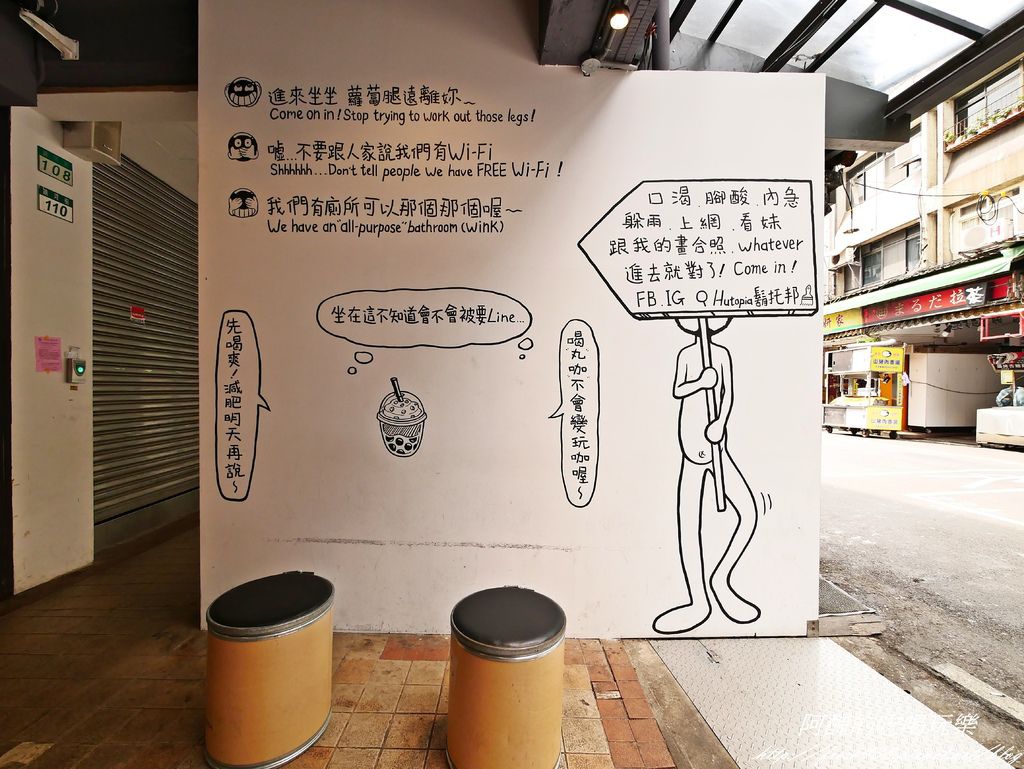 進來坐坐 蘿蔔腿遠離妳~
Come on in! Stop trying to work out those legs!
噓...不要跟人家說我們有Wi-Fi
Shhhhhh...Don't tell people we have FREE Wi-Fi !
我們有廁所可以那個那個喔~
We have an "all-purpose" bathroom (wink)
108
110
坐在這不知道會不會被要Line...
先喝爽!減肥明天再說~
喝丸咖不會變玩咖喔~
口渴.腳酸.內急
躲雨.上網.看妹
跟我的畫合照.whatever
進去就對了! Come in!
FB.IG Hutopia鬍托邦
まるだ拉茶